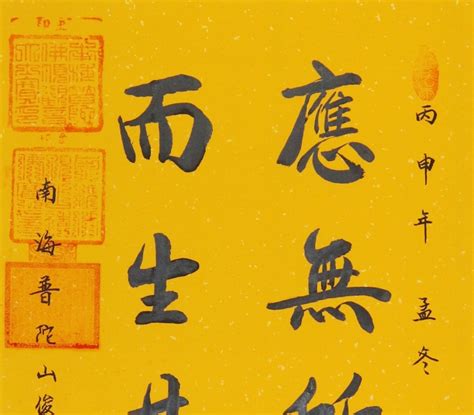 丙申年 孟冬
應無所
而生其
南海普陀山俊